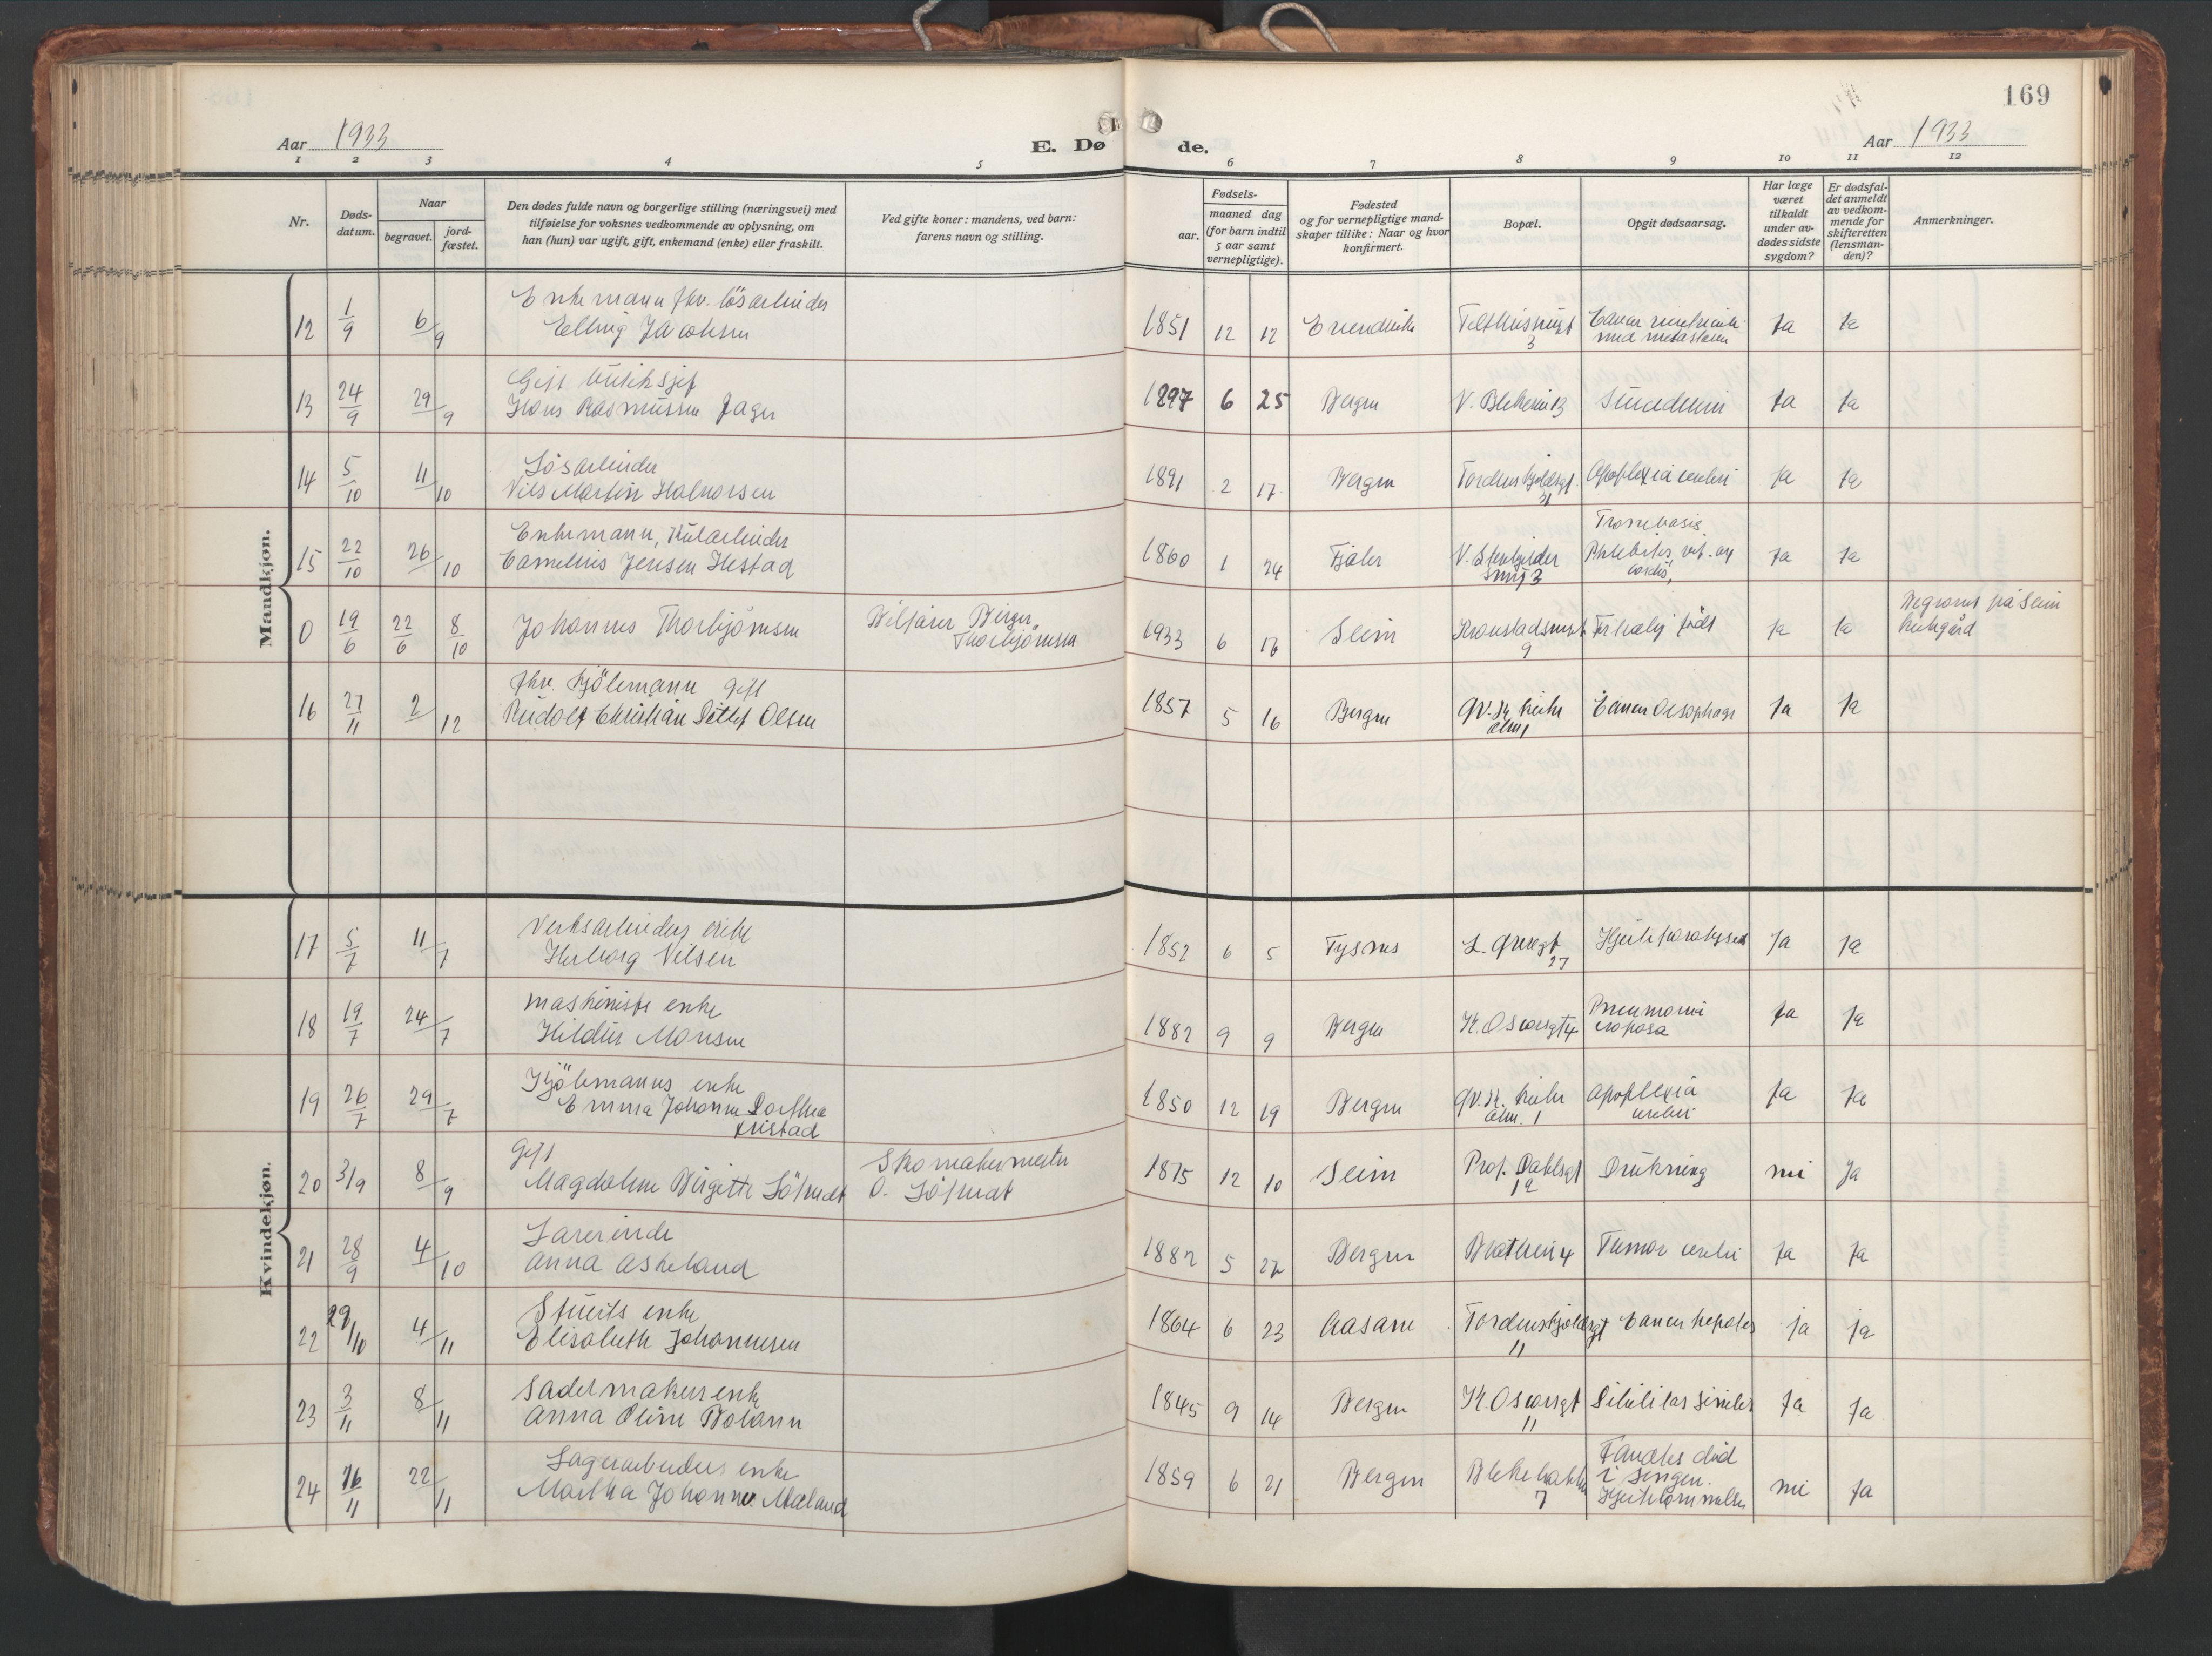 169
Aar 1933
E. Dø
de.
Aar 1933
1 2 3 4 5 6 7 8 9 10 11 12
Nr.
Døds-
datum.
Naar
begravet.
jord-
fæstet.
Den dødes fulde navn og borgerlige stilling (næringsvei) med
tilføielse for voksnes vedkommende av oplysning, om
han (hun) var ugift, gift, enkemand (enke) eller fraskilt.
Ved gifte koner: mandens, ved barn:
farens navn og stilling.
Fødsels-
aar.
maaned dag
(for barn indtil
5 aar samt
vernepligtige).
Fødested
og for vernepligtige mand-
skaper tillike: Naar og hvor
konfirmert.
Bopæl.
Opgit dødsaarsag.
Har læge
været
tilkaldt
under av-
dødes sidste
sygdom?
Er dødsfal-
det anmeldt
av vedkom-
mende for
skifteretten
(lensman-
den)?
Anmerkninger.
Mandkjøn.
12 1/9 6/9 Enkemann fhv. løsarbeider
Elling Jacobsen
1851 12 12 3 Ja Ja
13 24/9 29/9 Gift
Hans Rasmussen Jager
1897 6 25 Bergen V. Blekevei 13 Ja Ja
14 5/10 11/10 Løsarbeider
Nils Martin Halvorsen
1891 2 17 Bergen Tordenskjoldsgt. 21 Apoplexia cerebri Ja Ja
15 22/10 26/10 Enkemann, Kularbeider
Cornelius Jensen Hestad
1860 1 24 Fjaler 3 Ja Ja
0 19/6 22/6 8/10 Johannes Thorbjørnsen
Bilfører Birger
Thorbjørnsen
1933 6 16 Seim Kronstadsvei 9 For tidlig født Ja Ja
Begravet på Seim
kirkegård
16 27/11 2/12 fhv. Sjøkmann gift
Rudolf Christian Detlef Olsen
1857 5 16 Bergen 1 Cancer Oesophagi Ja Ja
Kvindekjøn.
17 5/7 11/7 Verksarbeiders enke
Herborg Nilsen
1852 6 5 Tysnes 27 Hjerteparalyse Ja Ja
18 19/7 24/7 maskinists enke
Hildur Monsen
1882 9 9 Bergen K. Oscarsgt 4 Pneumoni
crouposa Ja Ja
19 26/7 29/7 enke
Emma Johanne Dorthea
Kristad
1850 12 19 Bergen 1 Apoplexia
cerebri Ja Ja
20 3/9 8/9 gift
Magdalene Birgitte Löfquist
Skomakermester
O. Löfquist
1875 12 10 Seim Prof. Dahlsgt
12 Drukning nei Ja
21 28/9 4/10 Lærerinde
Anna Askeland
1882 5 27 Bergen Tumor cerebri Ja Ja
22 29/10 4/11 Stuerts enke
Elisabeth Johannesen
1864 6 23 Aasane Tordenskjoldsgt
11 Cancer hepatis ja ja
23 3/11 8/11 Sadelmakers enke
Anna Oline Bolann
1845 9 14 Bergen K. Oscarsgt
11 Debilitas senilis Ja Ja
24 16/11 22/11 Lagerarbeiders enke
Martha Johanne Mæland
1859 6 21 Bergen Blekebakken
7 Fandtes død
i sengen.
Hjertelammelse nei Ja